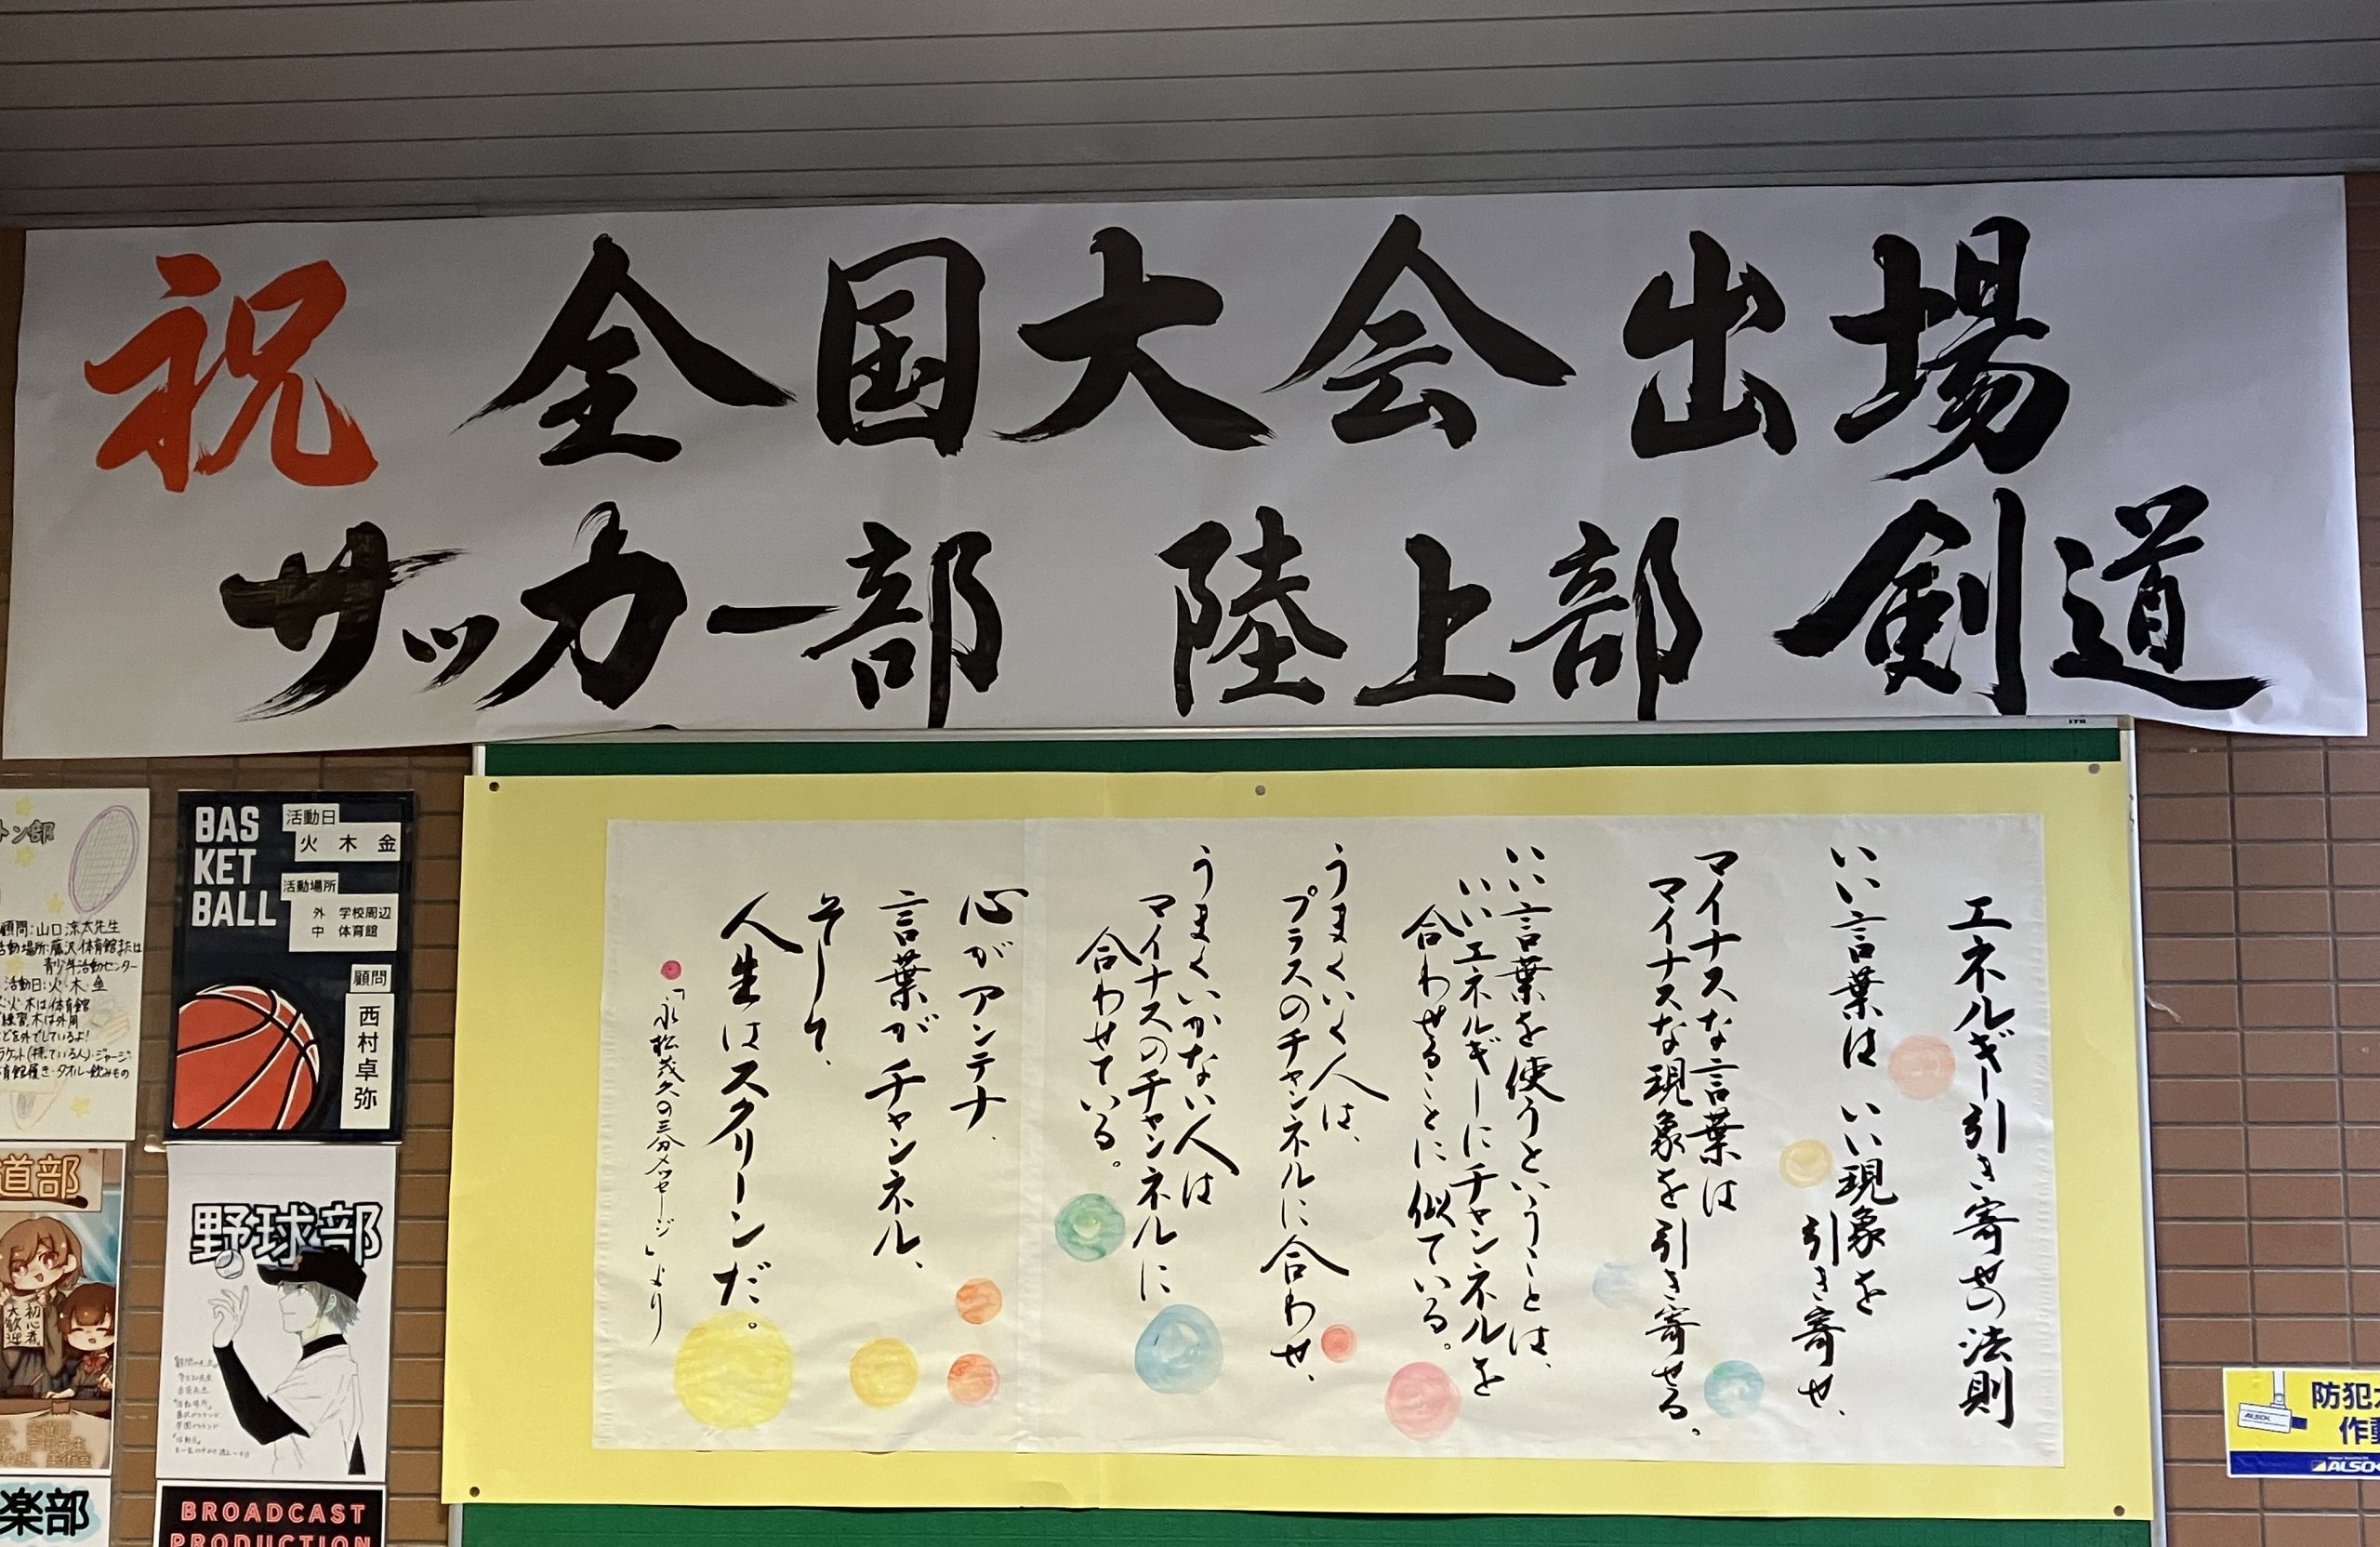 祝 全国大会 出場
サッカー部 陸上部 剣道
エネルギー引き寄せの法則
いい言葉は いい現象を
引き寄せ、
マイナスな言葉は
マイナスな現象を引き寄せる。
いい言葉を使うということは、
いいエネルギーにチャンネルを
合わせることに似ている。
うまくいく人は、
プラスのチャンネルに合わせ、
うまくいかない人は
マイナスのチャンネルに
合わせている。
心がアンテナ、
言葉がチャンネル、
そして、
人生はスクリーンだ。
「永松茂久の三分メッセージ」より
トン部
顧問:山口涼太先生
活動場所:藤沢体育館または
青少年活動センター
活動日:火・木・金
火・木は体育館
練習、木は外周
などを外でしているよ!
ラケット(持っている人)・ジャージ・
体育館履き・タオル・飲みもの
BAS
KET
BALL
活動日
火 木 金
活動場所
外 学校周辺
中 体育館
顧問
西村卓弥
道部
初心者
大歓迎
野球部
楽部
BROADCAST
PRODUCTION
防犯
作動
ALSOK